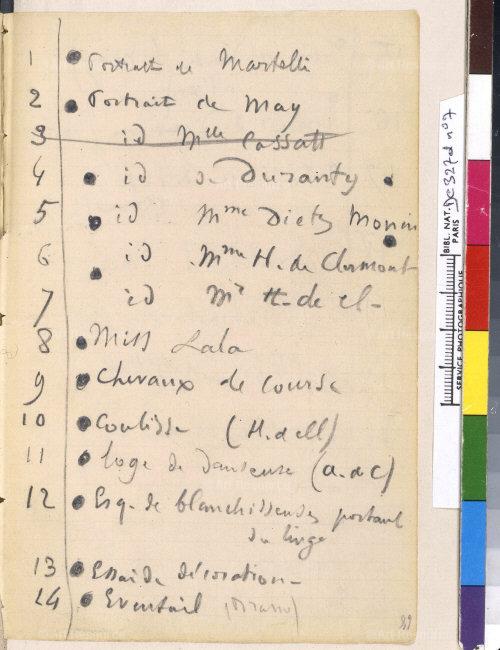 1 Portrait de Martelli
2 Portrait de May
3 id Mlle Cassatt
4 id de Duranty
5 id Mme Dietz Monin
6 id Mme H. de Clermont
7 id Mr H. de Cl-
8 Miss Lala
9 Chevaux de course
10 Coulisse (H. de Cl)
11 Loge de danseuse (A. de C)
12 Esq. de blanchisseuses portant
du linge
13 Essai de décoration-
14 Eventail
89
BIBL. NAT.
PARIS
De 327d n°7
SERVICE PHOTOGRAPHIQUE